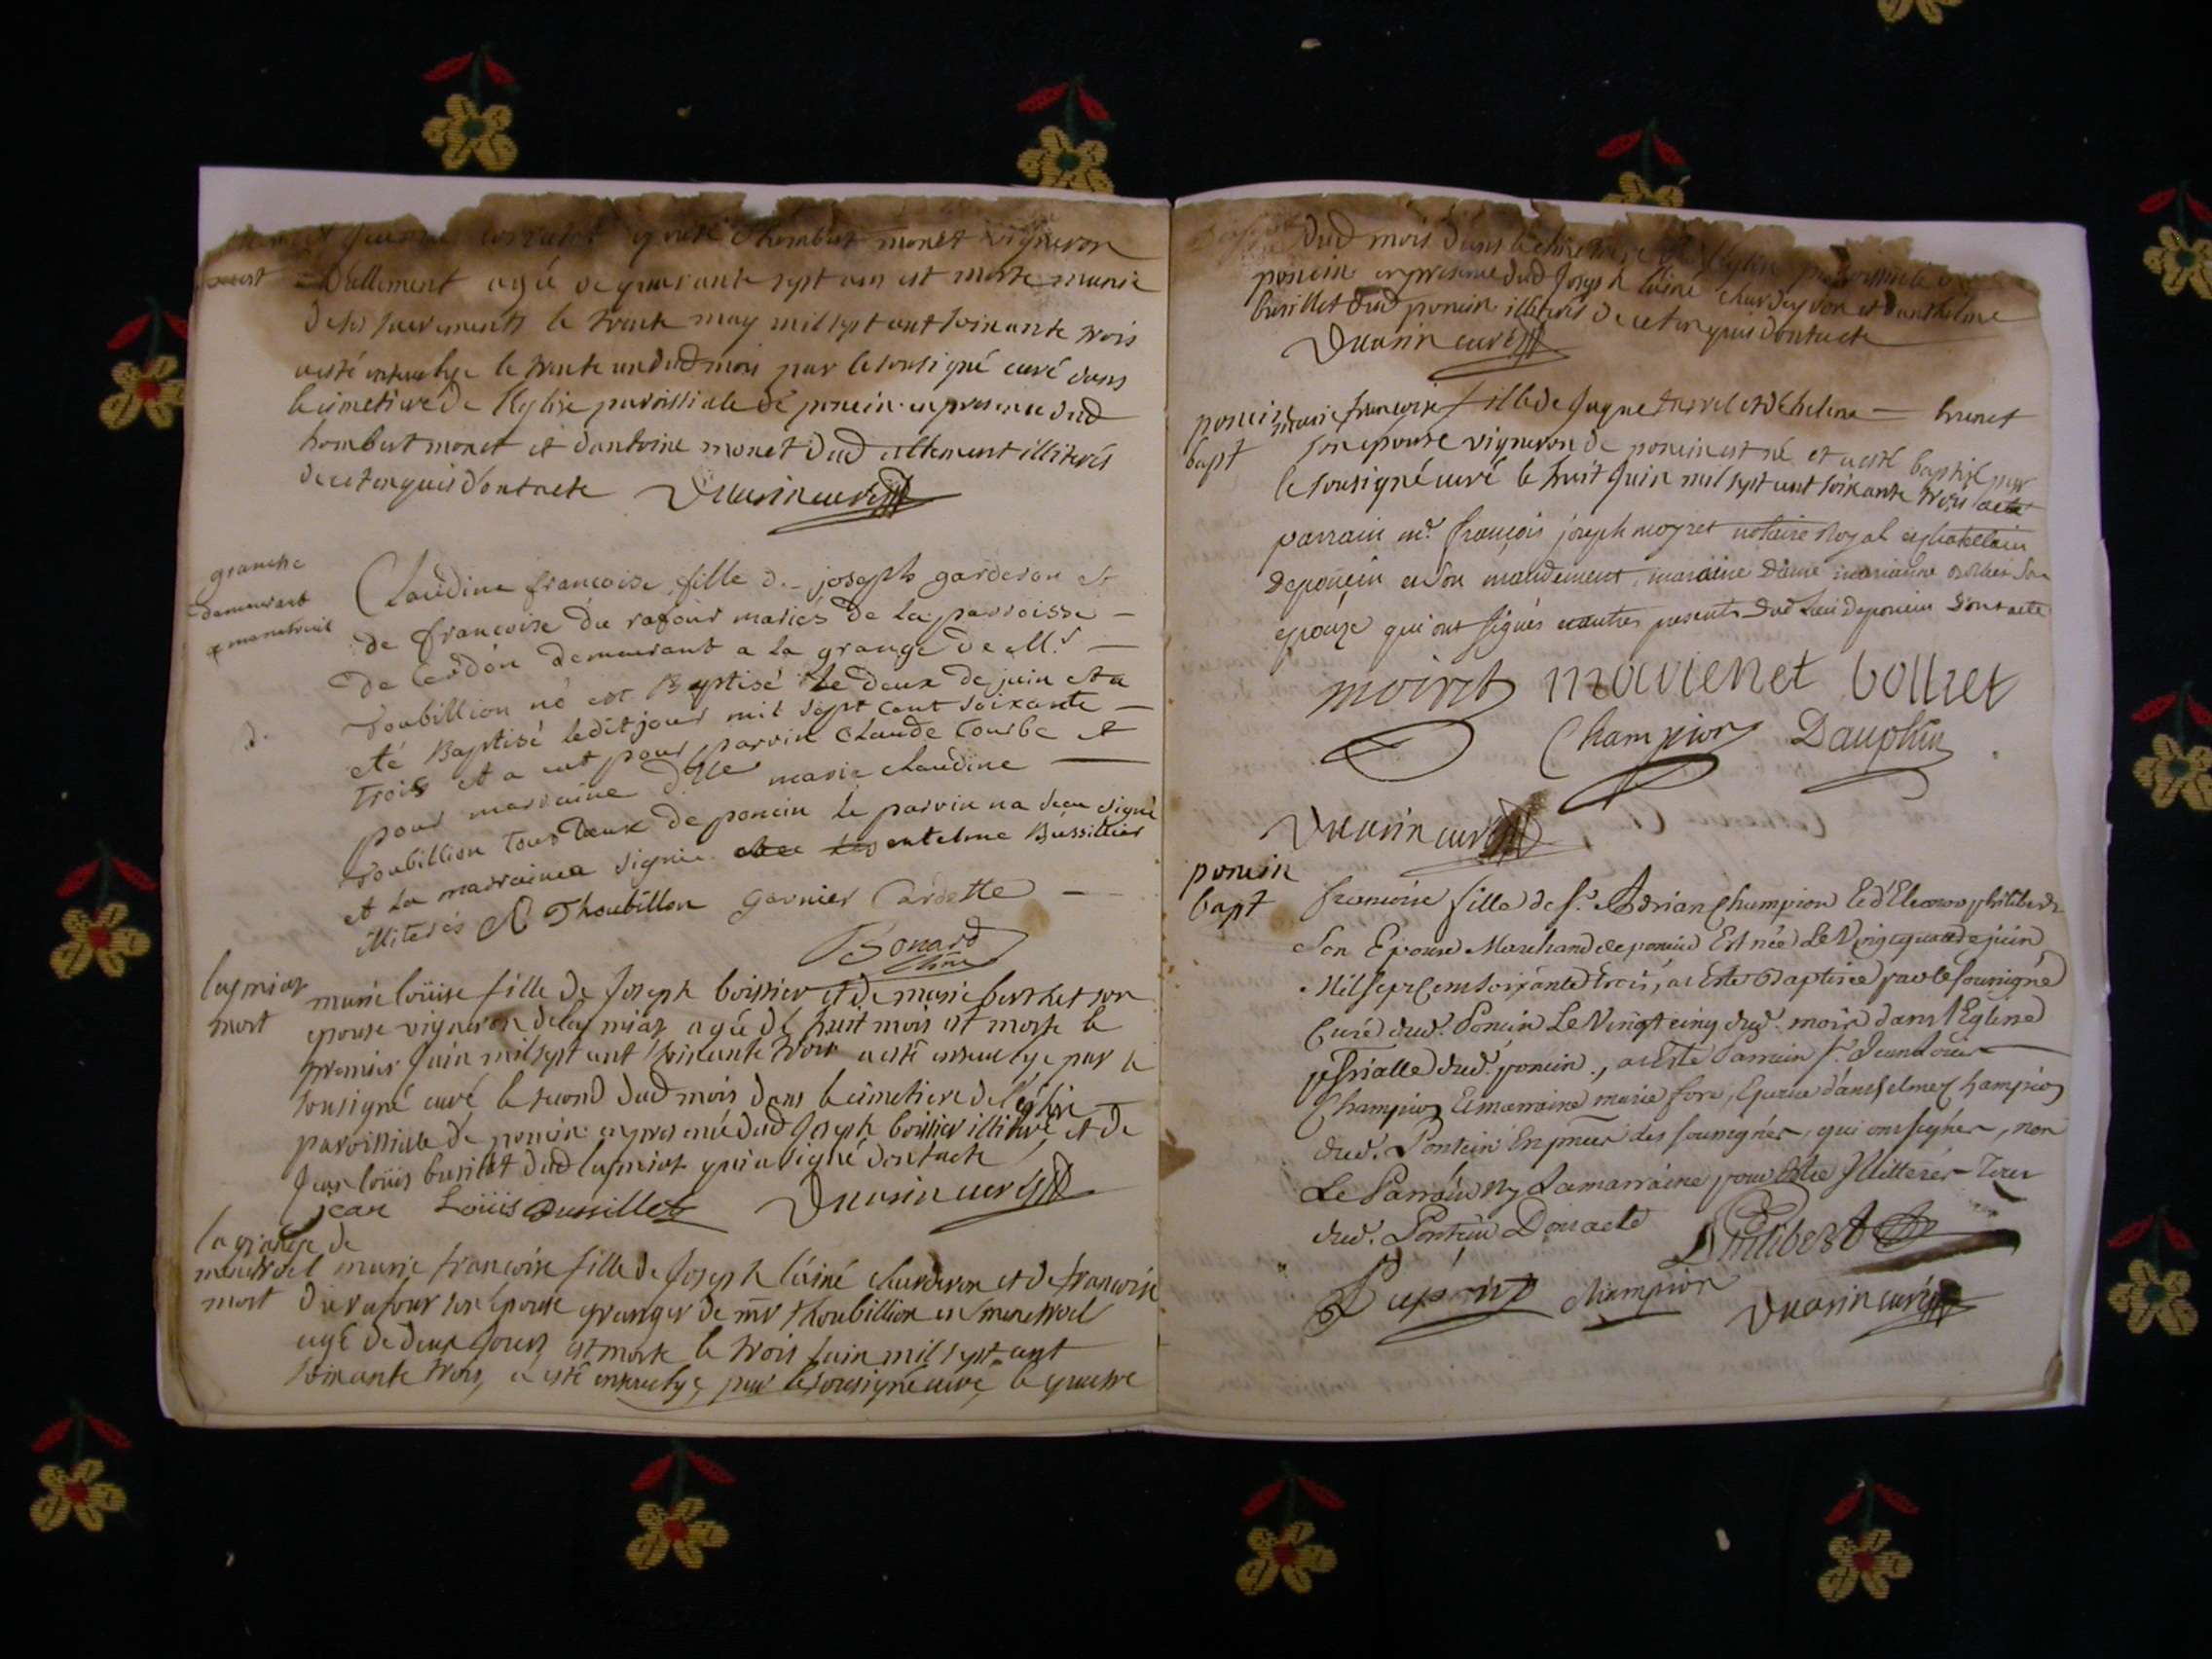 epouse d'hombert monet vigneron
mort
Dallement agée de quarante sept ans est morte munie
de ses sacrements le trente may mil sept cent soixante trois
a esté ensevelye le trente un dud mois par le sousigné curé dans
le cimetiere de l'eglise paroissiale de poncin en presence dud
hombert monet et d'antoine monet dud allement illiterés
de ce enquis dont acte curé
granche
demeurant
a menetruel
Claudine francoise fille de joseph garderon et
de francoise du rafour mariés de la parroisse
de Cerdon demeurant a la grange de Mr
Toubillion né est Baptisé le deux de juin et a
eté Baptisé ledit jour mil sept cent soixante
trois et a eut pour parrin Claude Courbe et
pour marraine dlle marie claudine
Toubillion tous deux de poncin le parrin na sceu signé
et la marraine a signée entelme Bussillier
illiterés Thoubillon garnier Cardette
Bonard
mort
marie loüise fille de Joseph boissier et de marie berthet son
epouse vigneron de agée de huit mois est morte le
premier Juin mil sept cent soixante trois a esté ensevelye par le
sousigné curé le second dud mois dans le cimetiere de l'eglise
paroissiale de poncin en presence dud Joseph boissier illiteré et de
Jean loüis busillet dud qui a signé dont acte
jean Loüis Bussillet curé
la grange de
menetruel
mort
marie francoise fille de Joseph l'ainé charderon et de francoise
du rafour son epouse granger de mr thoubillion en menetruel
agé de deux jours est morte le trois Juin mil sept cent
soixante trois, a esté ensevelye par le sousigné curé le quatre
dud mois dans le cimetiere de l'eglise paroissiale de
poncin en presence dud Joseph l'ainé charderon et d'anthelme
busillet dud poncin illiterés de ce enquis dont acte
curé
poncin
bapt
marie francoise fille de Jaques tarvel et d'helene brunet
son epouse vigneron de poncin est né et a esté baptisé par
le sousigné curé le huit Juin mil sept cent soixante trois
parrain mr françois joseph moyret notaire Royal et chatelain
de poncin et son mandement, maraine dame marianne son
epouze qui ont signés et autres presents dud lieu de poncin dont acte
moiret
Champion Dauphin
curé
poncin
bapt
francoise fille de sr. Adrian Champion et d'Eleonor philibert
son Epouse Marchand de poncin Est née Le Vingt quatre juin
Mil sept Cent soixante trois, a Esté Baptisée par le sousigné
Curé dud. Poncin Le Vingt cinq dud. mois dans l'Eglise
dud. poncin., a Esté Parrain sr. Jean Loüis
Champion Et marraine marie fore, Epouse d'anthelme Champion
dud. Pontcin En pnce des sousignés, qui ont signés, non
Le Parrain ny La marraine pour Estre Illitterés Tous
dud. Pontcin Dont acte
Philibert
champion curé